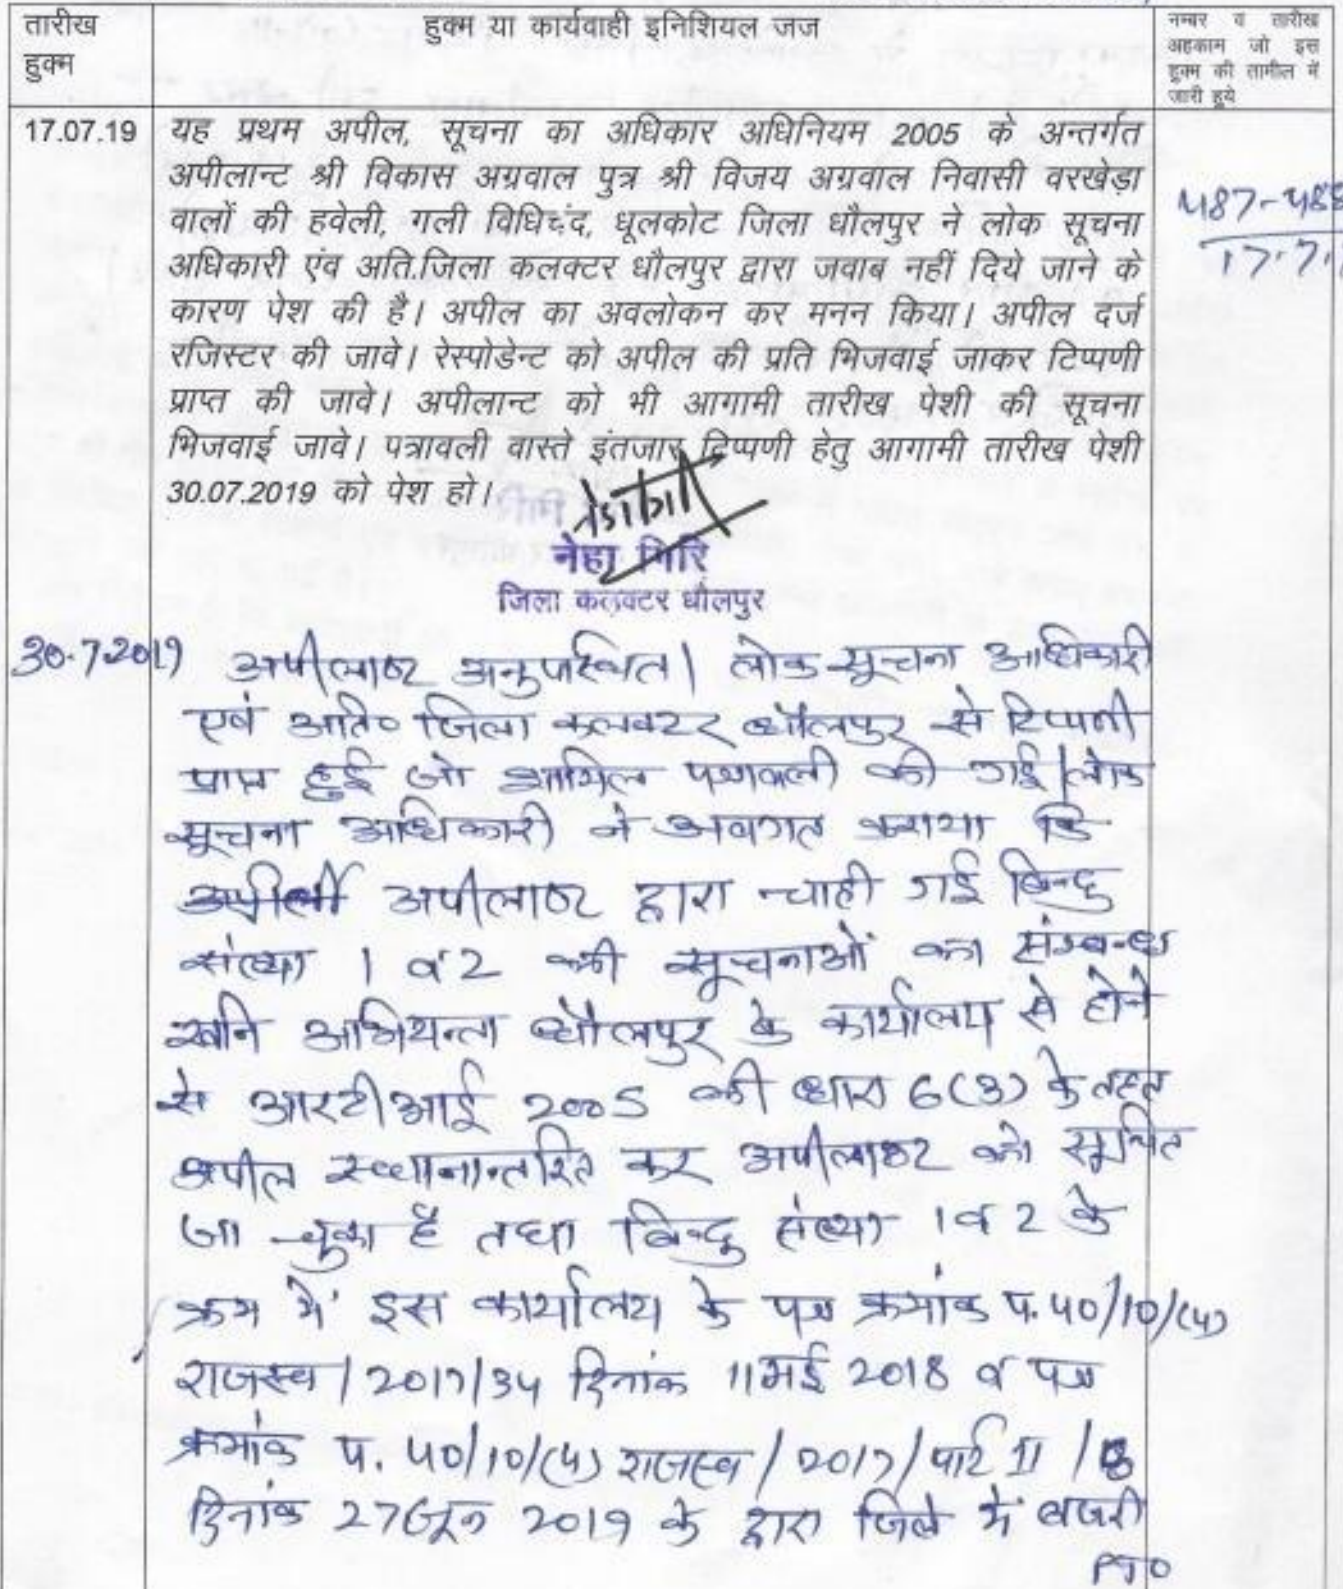 तारीख
हुक्म
हुक्म या कार्यवाही इनिशियल जज
नम्बर व तारीख
अहकाम जो इस
हुक्म की तामील में
जारी हुये
17.07.19
यह प्रथम अपील, सूचना का अधिकार अधिनियम 2005 के अन्तर्गत
अपीलान्ट श्री विकास अग्रवाल पुत्र श्री विजय अग्रवाल निवासी वरखेड़ा
वालों की हवेली, गली विधिचंद, धूलकोट जिला धौलपुर ने लोक सूचना
अधिकारी एंव अति.जिला कलक्टर धौलपुर द्वारा जवाब नहीं दिये जाने के
कारण पेश की है। अपील का अवलोकन कर मनन किया। अपील दर्ज
रजिस्टर की जावे। रेस्पोडेन्ट को अपील की प्रति भिजवाई जाकर टिप्पणी
प्राप्त की जावे। अपीलान्ट को भी आगामी तारीख पेशी की सूचना
भिजवाई जावे। पत्रावली वास्ते इंतजार टिप्पणी हेतु आगामी तारीख पेशी
30.07.2019 को पेश हो।
487-488
17.7.1
नेहा गिरि
जिला कलक्टर धौलपुर
30.7.2019
अपीलान्ट अनुपस्थित। लोक सूचना अधिकारी
एवं अति० जिला कलक्टर धौलपुर से टिप्पणी
प्राप्त हुई जो शामिल पत्रावली की गई। लोक
सूचना अधिकारी ने अवगत कराया कि
अपीलान्ट द्वारा चाही गई बिन्दु
संख्या 1 व 2 की सूचनाओं का संम्बन्ध
खनि अभियन्ता धौलपुर के कार्यालय से होने
से आरटीआई 2005 की धारा 6(3) के तहत
अपील स्थानान्तरित कर अपीलान्ट को सूचित
जा चुका है तथा बिन्दु संख्या 1 व 2 के
क्रम में इस कार्यालय के पत्र क्रमांक प.40/10/(4)
राजस्व/2017/34 दिनांक 11 मई 2018 व पत्र
क्रमांक प. 40/10/(4) राजस्व/2017/पार्ट II/
दिनांक 27 जून 2019 के द्वारा जिले में बजरी
PTO